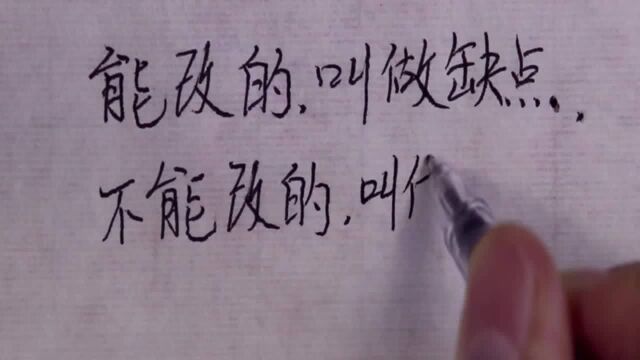 能改的,叫做缺点.,
不能改的,叫